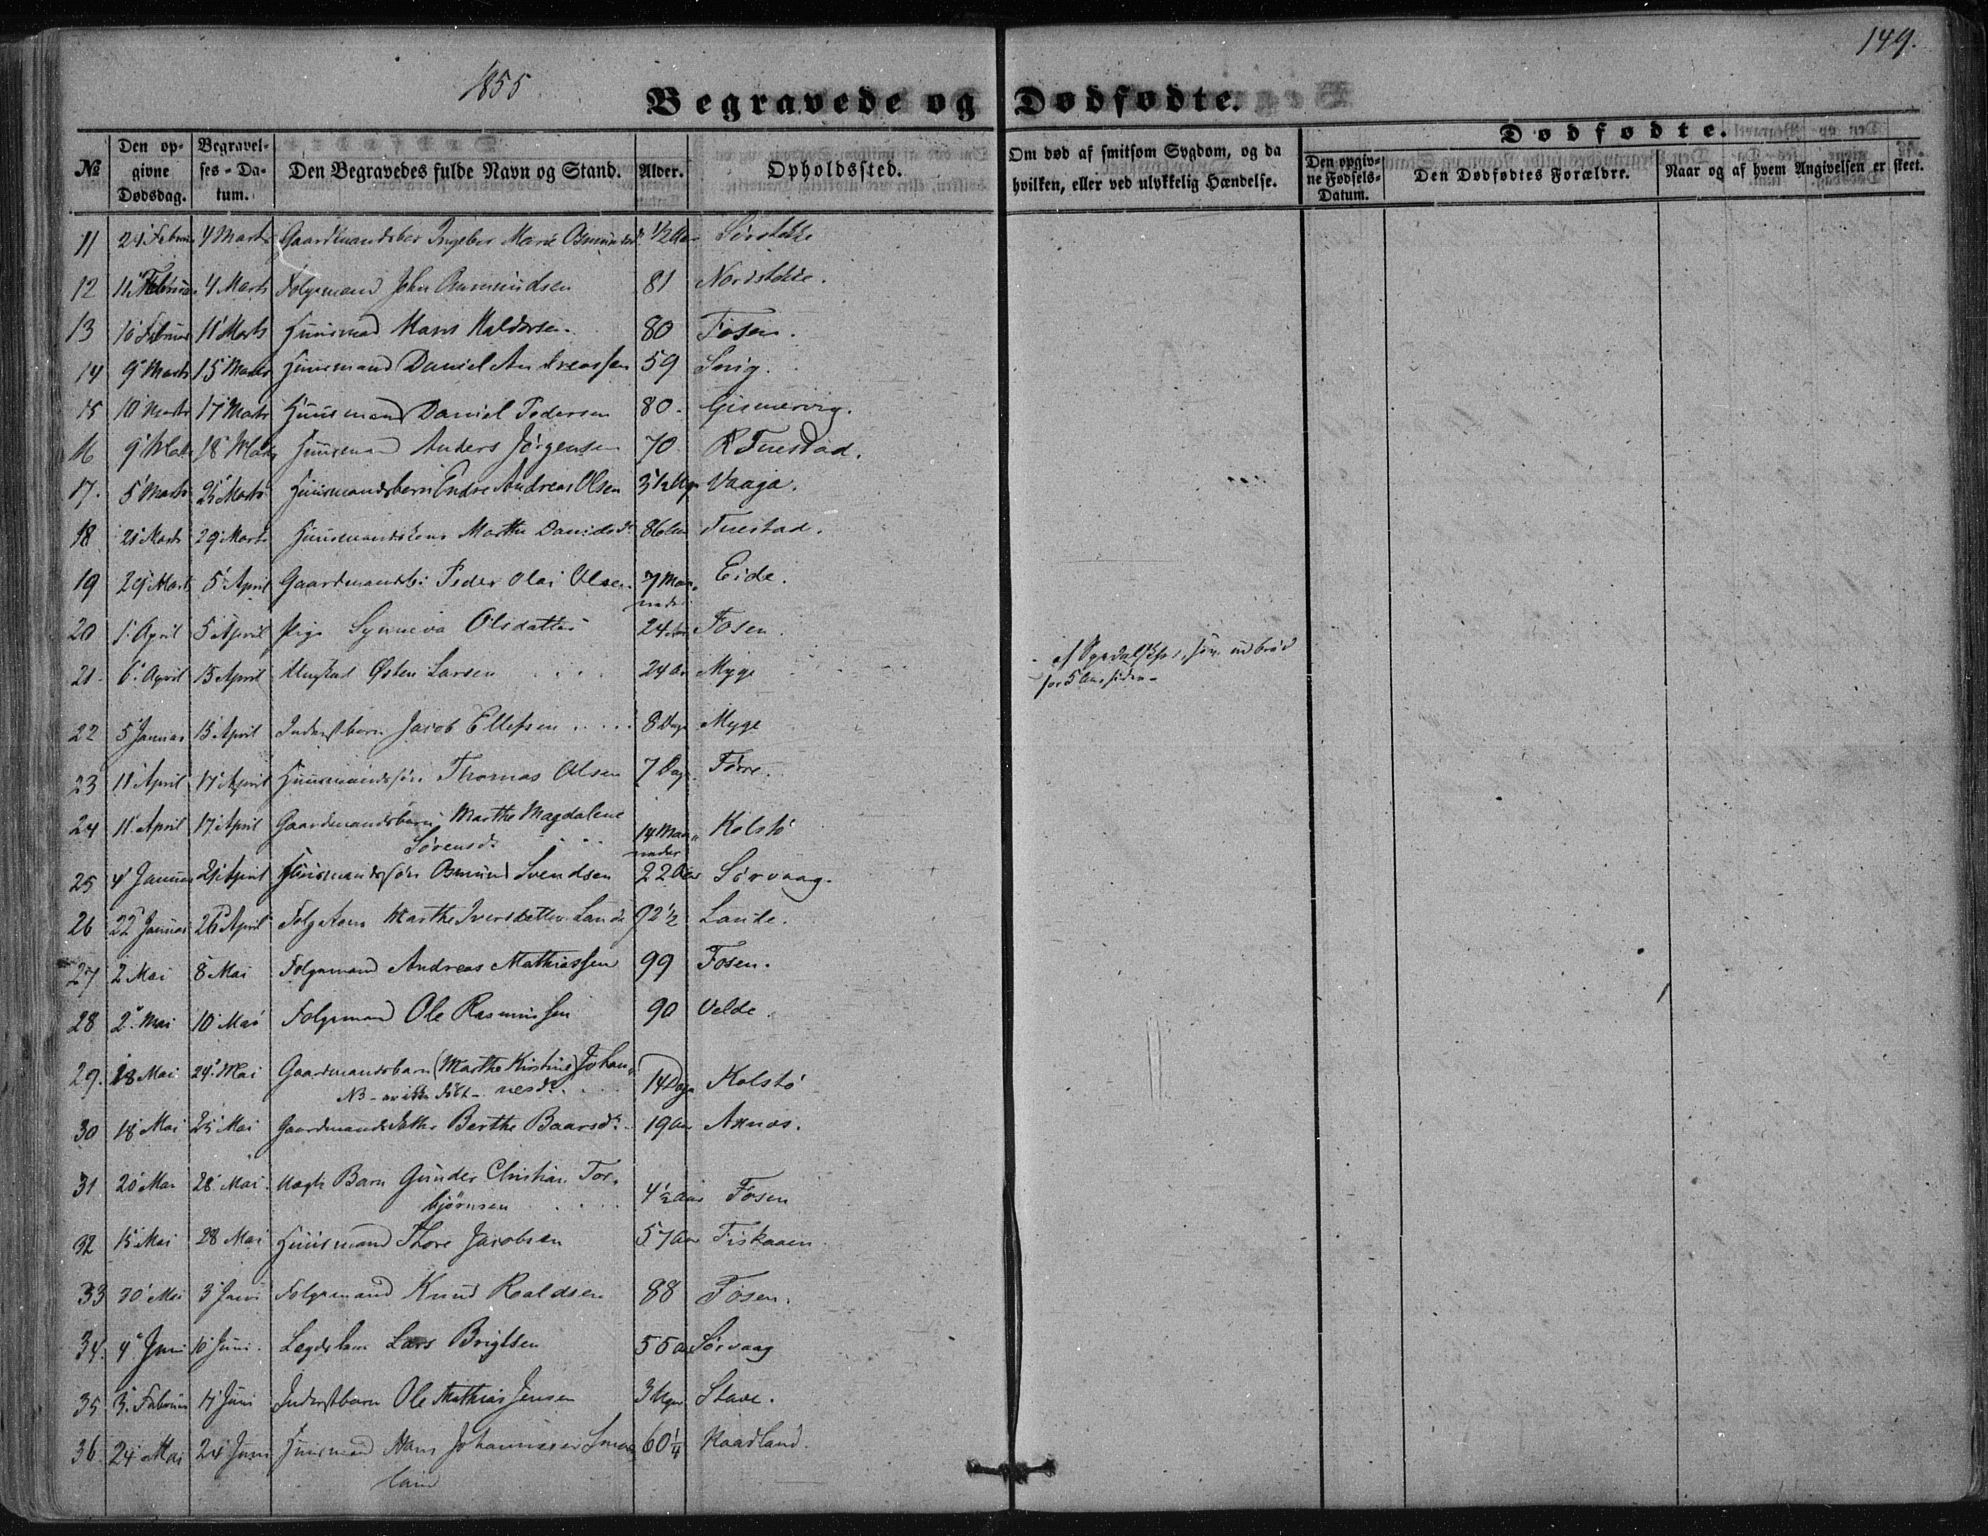 149.
1855
Begravede og Dødfødte.
№ Den opgivne Dødsdag. Begravelses-Datum. Den Begravedes fulde Navn og Stand. Alder. Opholdssted. Om død af smitsom Sygdom, og da hvilken, eller ved ulykkelig Hændelse. Dødfødte. Den opgivne Fødsels-Datum. Den Dødfødtes Forældre. Naar og af hvem Angivelsen er skeet.
11 21 Februar 4 Marts Ingebor Marie 1/2 Aar
12 11 Februar 4 Marts Folgemand John 81 Nordstokke.
13 10 Februar 11 Marts Huusmand Hans Haldorsen 80 Fosen.
14 9 Marts 15 Marts Huusmand Daniel Andreassen 59
15 10 Marts 17 Marts Huusmand Daniel Pedersen 80. Gismervig.
16 9 Marts 18 Marts Huusmand Anders Jørgensen 70
17. 5 Marts 25 Marts Huusmandsbarn Endre Andreas Olsen 3 1/2 Uge Vaaga.
18 21 Marts 29 Marts Huusmandskone Marthe Davidsd. 86 Aar
19 29 Marts 5 April Peder Olai Olsen 7 Maaneder Eide.
20 1 April 5 April Pige Synneva Olsdatter 24 Aar Fosen.
21. 6 April 15 April Østen Larsen 24 Aar Myge af Spedalskhed, som udbrød for 5 Aar siden
22 5 Januar 15 April Inderstbarn Jacob Ellefsen 8 Dage Myge
23 11 April 17 April Huusmandssøn Thomas Olsen 7 Dage Førre.
24 11 April 17 April Gaardmandsbarn Marthe Magdalene Sørensd. 14 Maaneder Kolstø
25 4 Januar 21 April Huusmandssøn Osmund Svendsen 22 Aar Sørvaag.
26 22 Januar 26 April Folgekone Marthe Iversdatter Lande 92 1/2 Lande.
27 2 Mai 8 Mai Folgemand Andreas Mathiassen 99 Fosen.
28 2 Mai 10 Mai Folgemand Ole Rasmussen 90 Velde.
29. 18 Mai 24 Mai Gaardmandsbarn (Marthe Kirstine) Johannesd. 14 Dage Kolstø
NB - er ikke døbt -
30 18 Mai 25 Mai Gaardmandsdatter Berthe Baarsd. 19 Aar Axnæs.
31 20 Mai 28 Mai Uægte Barn Gunder Christian Torbjørnsen 4 1/2 Aar Fosen
32 15 Mai 28 Mai Huusmand Thore Jacobsen 57 Aar Fiskaaen
33 30 Mai 3 Juni Folgemand Knud Roaldsen 88 Fosen.
34. 4 Juni 10 Juni. Lægdslem Lars Brigtsen 55 Aar Sørvaag
35. 3. Februar 17 Juni Inderstbarn Ole Mathias Jensen 3 Uger Stave.
36. 24 Mai 24 Juni Huusmand Hans Johannessen 60 1/4 Haadland.